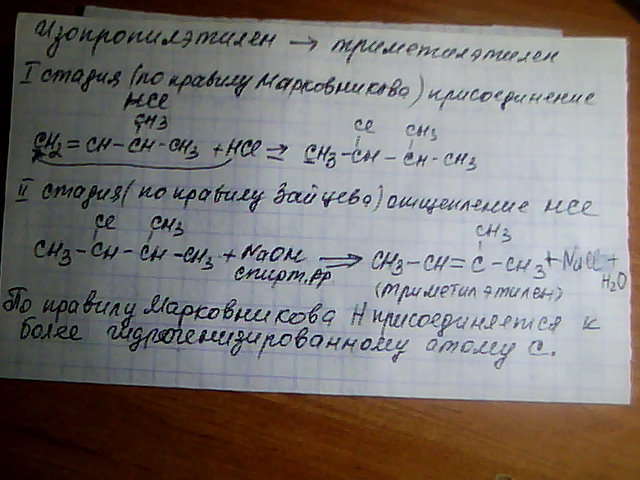 Изопропилэтилен → триметилэтилен
I стадия (по правилу Марковникова) присоединение
HCl
CH3
CH2 = CH - CH - CH3 + HCl → CH3 - CH - CH - CH3
Cl CH3
II стадия (по правилу Зайцева) отщепление HCl
Cl CH3
CH3 - CH - CH - CH3 + NaOH → CH3 - CH = C - CH3 + NaCl + H2O
CH3
спирт. р-р
(триметилэтилен)
По правилу Марковникова H присоединяется к
более гидрогенизированному атому C.